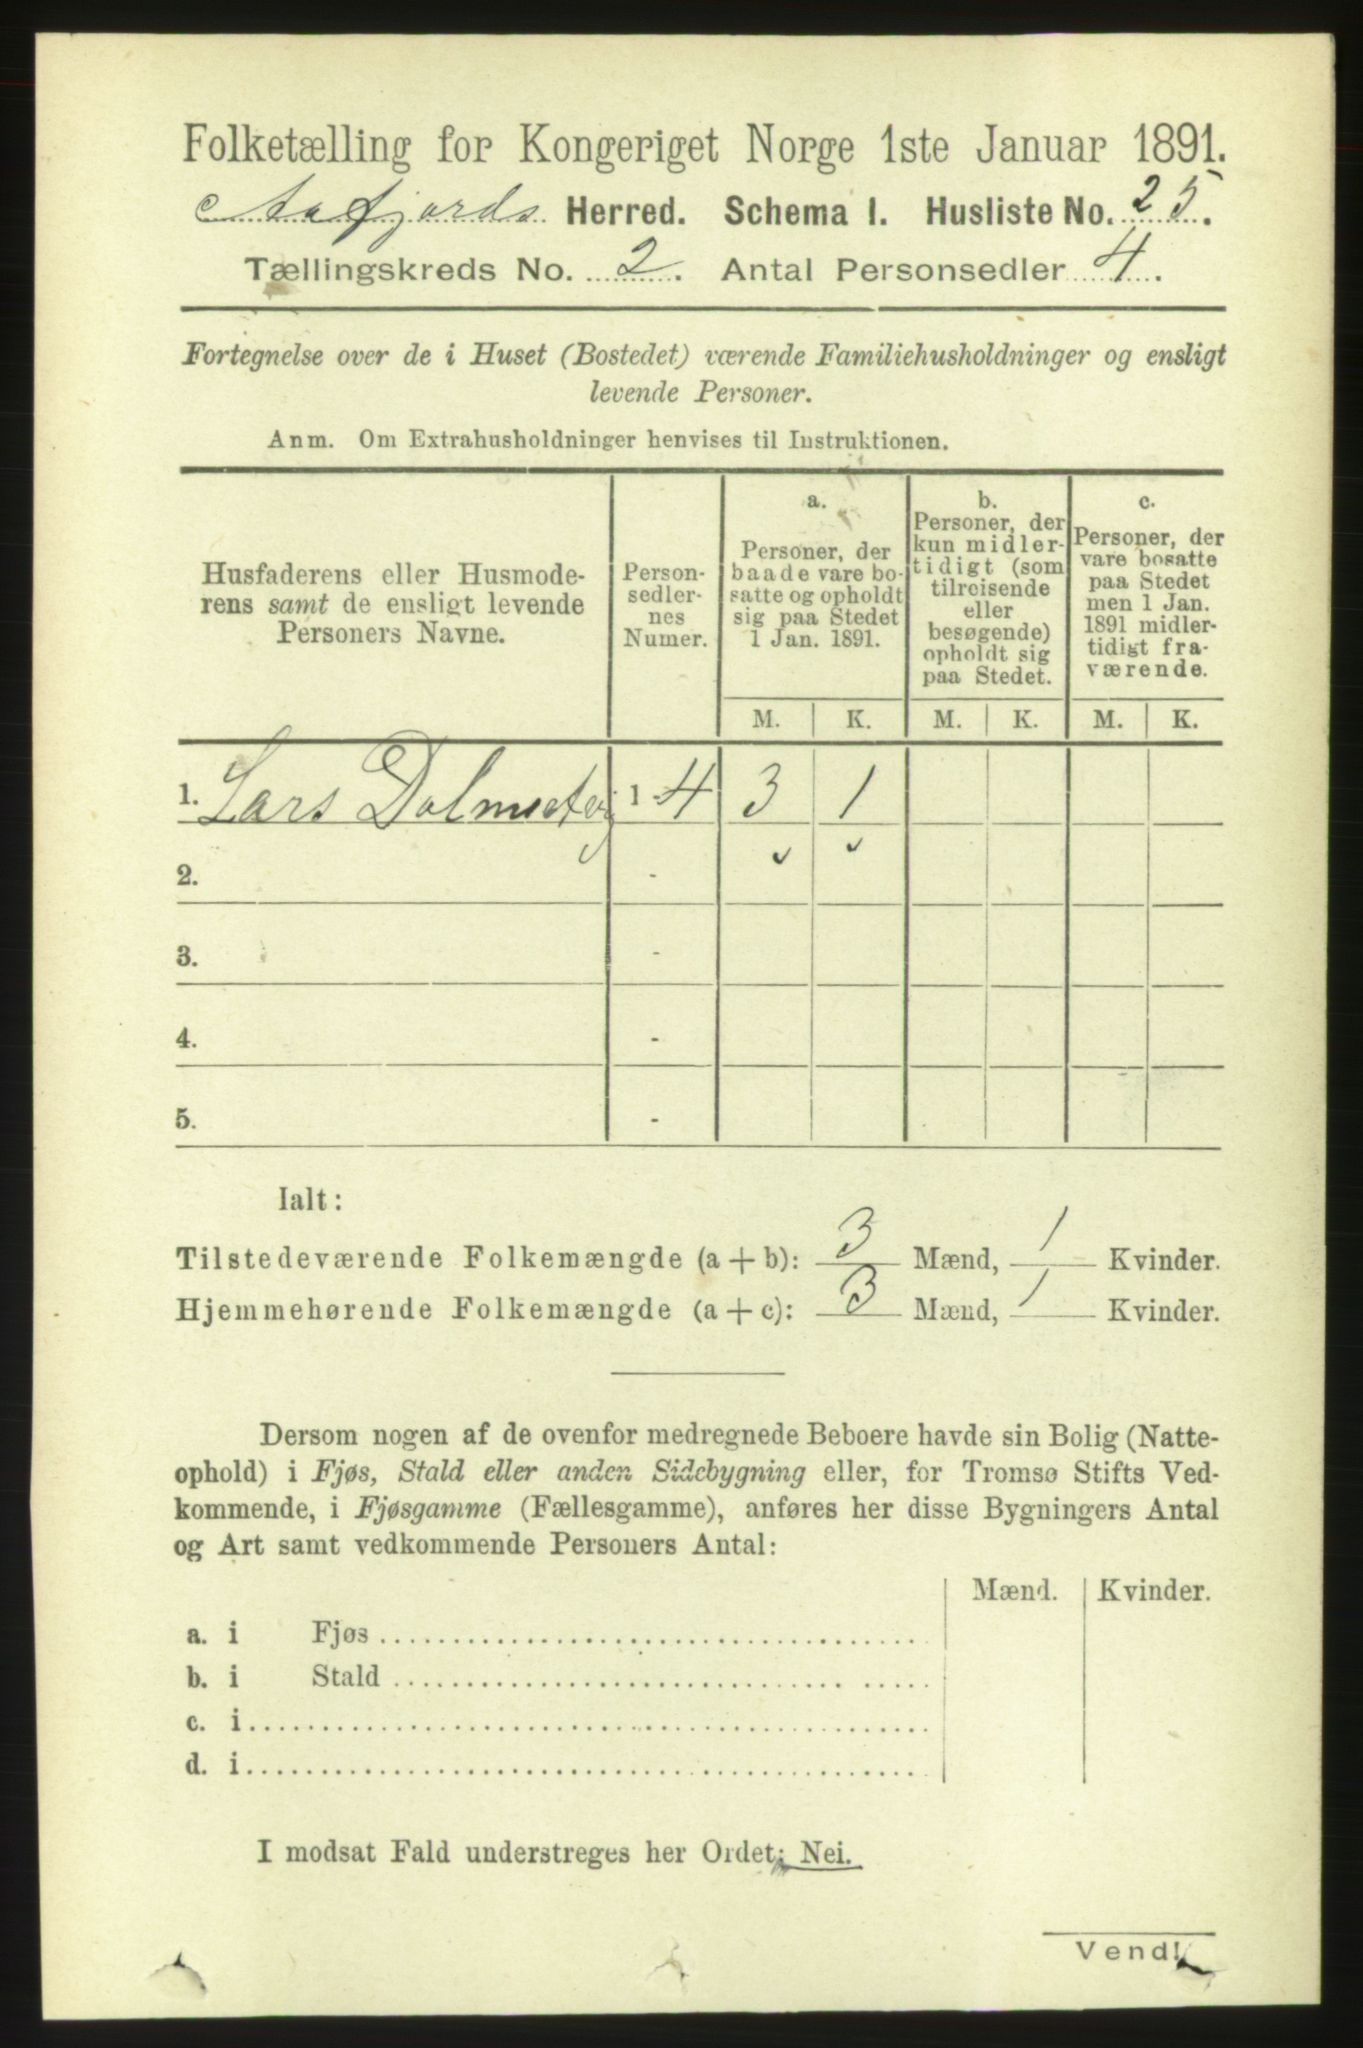 Folketælling for Kongeriget Norge 1ste Januar 1891.
Aafjords Herred. Schema 1. Husliste No. 25.
Tællingskreds No. 2. Antal Personsedler 4.
Fortegnelse over de i Huset (Bostedet) værende Familiehusholdninger og ensligt
levende Personer.
Anm. Om Extrahusholdninger henvises til Instruktionen.
Husfaderens eller Husmode-
rens samt de ensligt levende
Personers Navne.
Person-
sedler-
nes
Numer.
a.
Personer, der
baade vare bo-
satte og opholdt
sig paa Stedet
1 Jan. 1891.
b.
Personer, der
kun midler-
tidigt (som
tilreisende
eller
besøgende)
opholdt sig
paa Stedet.
c.
Personer, der
vare bosatte
paa Stedet
men 1 Jan.
1891 midler-
tidigt fra-
værende.
M. K. M. K. M. K.
1. Lars 1-4 3 1
2. -
3. -
4. -
5. -
Ialt:
Tilstedeværende Folkemængde (a + b): 3 Mænd, 1 Kvinder.
Hjemmehørende Folkemængde (a + c): 3 Mænd, 1 Kvinder.
Dersom nogen af de ovenfor medregnede Beboere havde sin Bolig (Natte-
ophold) i Fjøs, Stald eller anden Sidebygning eller, for Tromsø Stifts Ved-
kommende, i Fjøsgamme (Fællesgamme), anføres her disse Bygningers Antal
og Art samt vedkommende Personers Antal:
Mænd. Kvinder.
a. i Fjøs
b. i Stald
c. i
d. i
I modsat Fald understreges her Ordet: Nei.
Vend!